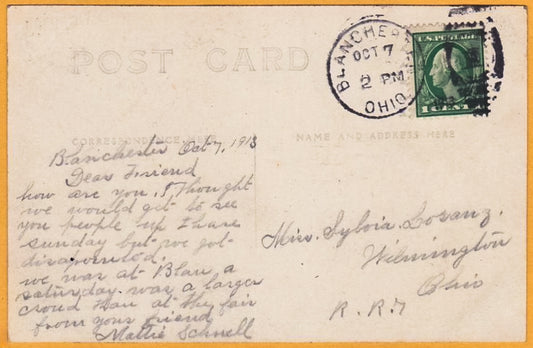 POST CARD
BLANCHESTER
OCT 7
2 PM
OHIO
U.S. POSTAGE
1 CENT
CORRESPONDENCE HERE
NAME AND ADDRESS HERE
Blanchester Oct 7, 1913
Dear Friend
how are you. I, thought
we would get to see
you people up there
sunday but we got
disapointed.
we was at Blan a
saturday was a larger
croud than at the fair
from your friend
Mattie Schnell
Miss. Sylvia
Wilmington
Ohio
R. R. 7